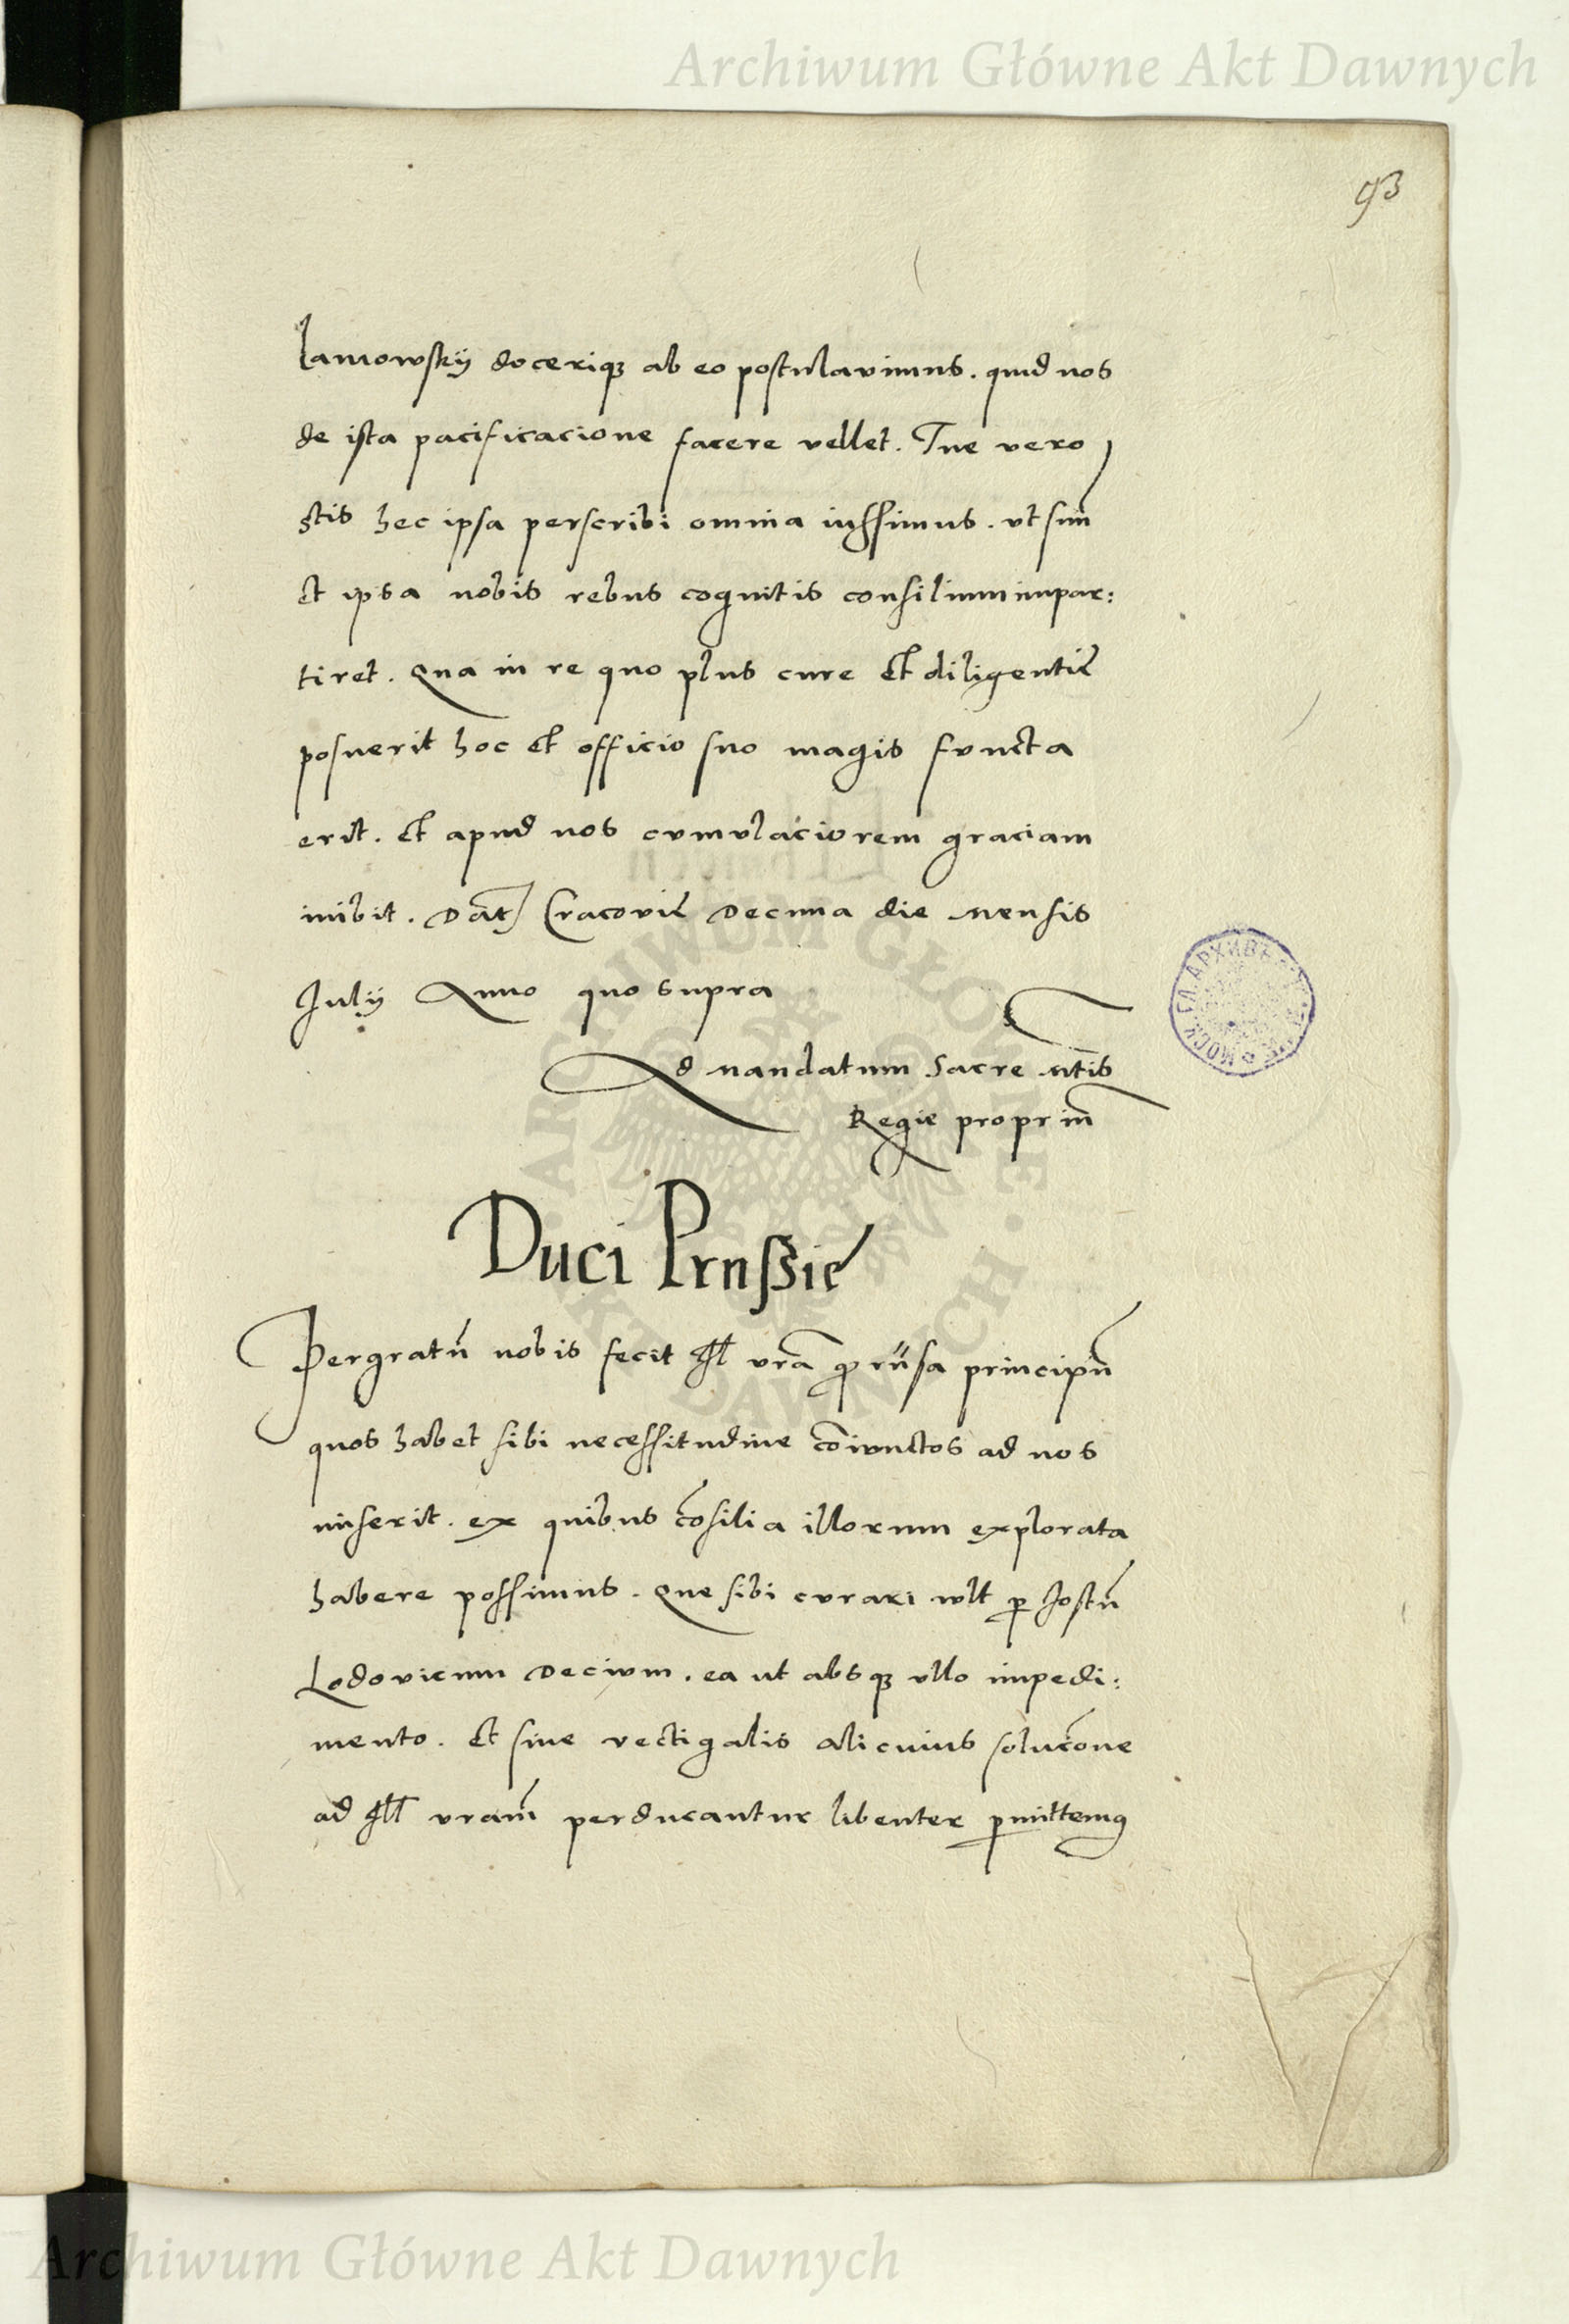 Archiwum Główne Akt Dawnych
93
lamowskÿ docerique ab eo postulavimus. quid nos
de ista pacificacione facere vellet. Tue vero
stis hec ipsa perscribi omnia iussimus. vt sim
et ipsa nobis rebus cognitis consilium impar:
tiret. Qua in re quo plus cure et diligentie
posuerit hoc et officio suo magis functa
erit. et apud nos cumulaciorem graciam
inibit. Dat Cracovie Decima die Mensis
Julÿ Anno quo supra
Ad Mandatum Sacre Mtis
Regie propriu
Duci Prussie
Pergratu nobis fecit Ill vra principu
quos habet sibi necessitudine coiunctos ad nos
miserit. ex quibus cosilia illorum explorata
habere possimus. Que sibi curari vult p Jostu
Lodovicum Decium. ea ut absque ullo impedi:
mento. et sine vectigalis alicuius solucone
ad Ill vram perducantur libenter pmittemus
ARCHIWUM GŁÓWNE AKT DAWNYCH
Archiwum Główne Akt Dawnych